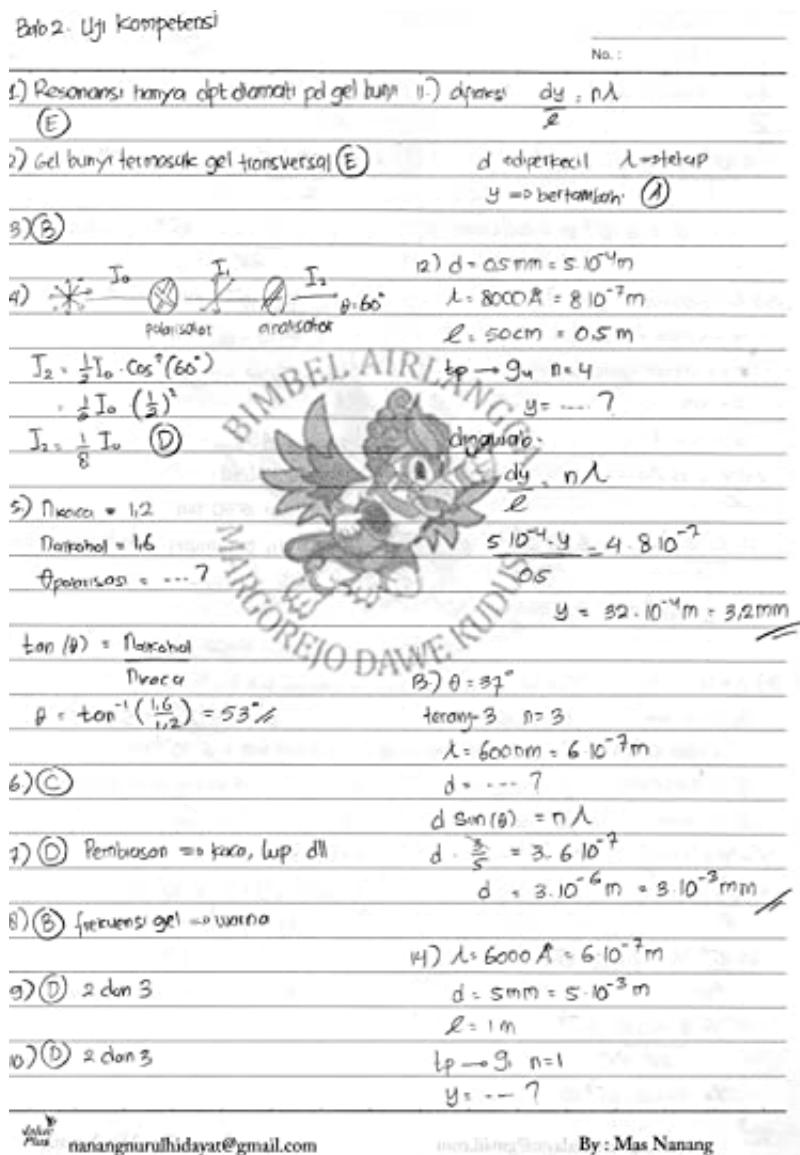 Bab 2. Uji Kompetensi
No. :
1) Resonansi hanya dpt diamati pd gel bunyi
(E)
2) Gel bunyi termasuk gel transversal (E)
3) (B)
4) I₀ I₁ I₂ θ=60°
polarisator analisator
I₂ = ½ I₀ . Cos² (60°)
= ½ I₀ (½)²
I₂ = 1/8 I₀ (D)
5) nkaca = 1,2
nalkohol = 1,6
θpolarisasi = ---- ?
tan (θ) = nalkohol / nkaca
θ = tan⁻¹ (1,6/1,2) = 53° //
6) (C)
7) (D) Pembiasan => kaca, lup dll
8) (B) frekuensi gel => warna
9) (D) 2 dan 3
10) (D) 2 dan 3
11.) difraksi dy/l = nλ
d diperkecil λ => tetap
y => bertambah (A)
12) d = 0,5 mm = 5 10⁻⁴ m
λ = 8000 Å = 8 10⁻⁷ m
l = 50 cm = 0.5 m
tp → g₄ n=4
y = ---- ?
dijawab.
dy/l = nλ
5 10⁻⁴ . y / 0,5 = 4 . 8 10⁻⁷
y = 32 . 10⁻⁴ m = 3,2 mm
13.) θ = 37°
terang-3 n = 3
λ = 600 nm = 6 10⁻⁷ m
d = ---- ?
d sin (θ) = nλ
d . 3/5 = 3. 6 10⁻⁷
d = 3.10⁻⁶ m = 3.10⁻³ mm
14) λ = 6000 Å = 6 10⁻⁷ m
d = 5 mm = 5 . 10⁻³ m
l = 1 m
tp → g₁ n=1
y = --- ?
BIMBEL AIRLANGGA
MARGOREJO DAWE KUDUS
Value Plus nanangnurulhidayat@gmail.com
By : Mas Nanang